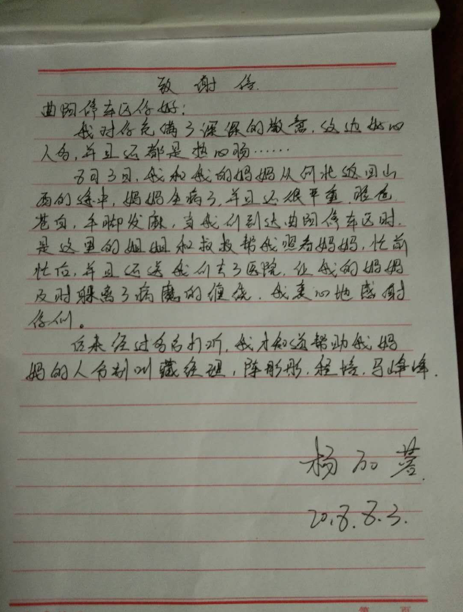 致谢信
曲阳停车区你好：
我对你充满了深深的敬意，这边好心
人多，并且还都是热心肠……
8月3日，我和我的妈妈从河北返回山
西的途中，妈妈生病了，并且还很严重，脸色
苍白，手脚发麻，当我们到达曲阳停车区时，
是这里的姐姐和叔叔帮我照看妈妈，忙前
忙后，并且还送我们去了医院，让我的妈妈
及时脱离了病魔的，我衷心地感谢
你们。
后来经过多多打听，我才知道帮助我妈
妈的人分别叫臧经理，陈彤彤，程培，马峰峰.
杨
2018.8.3.